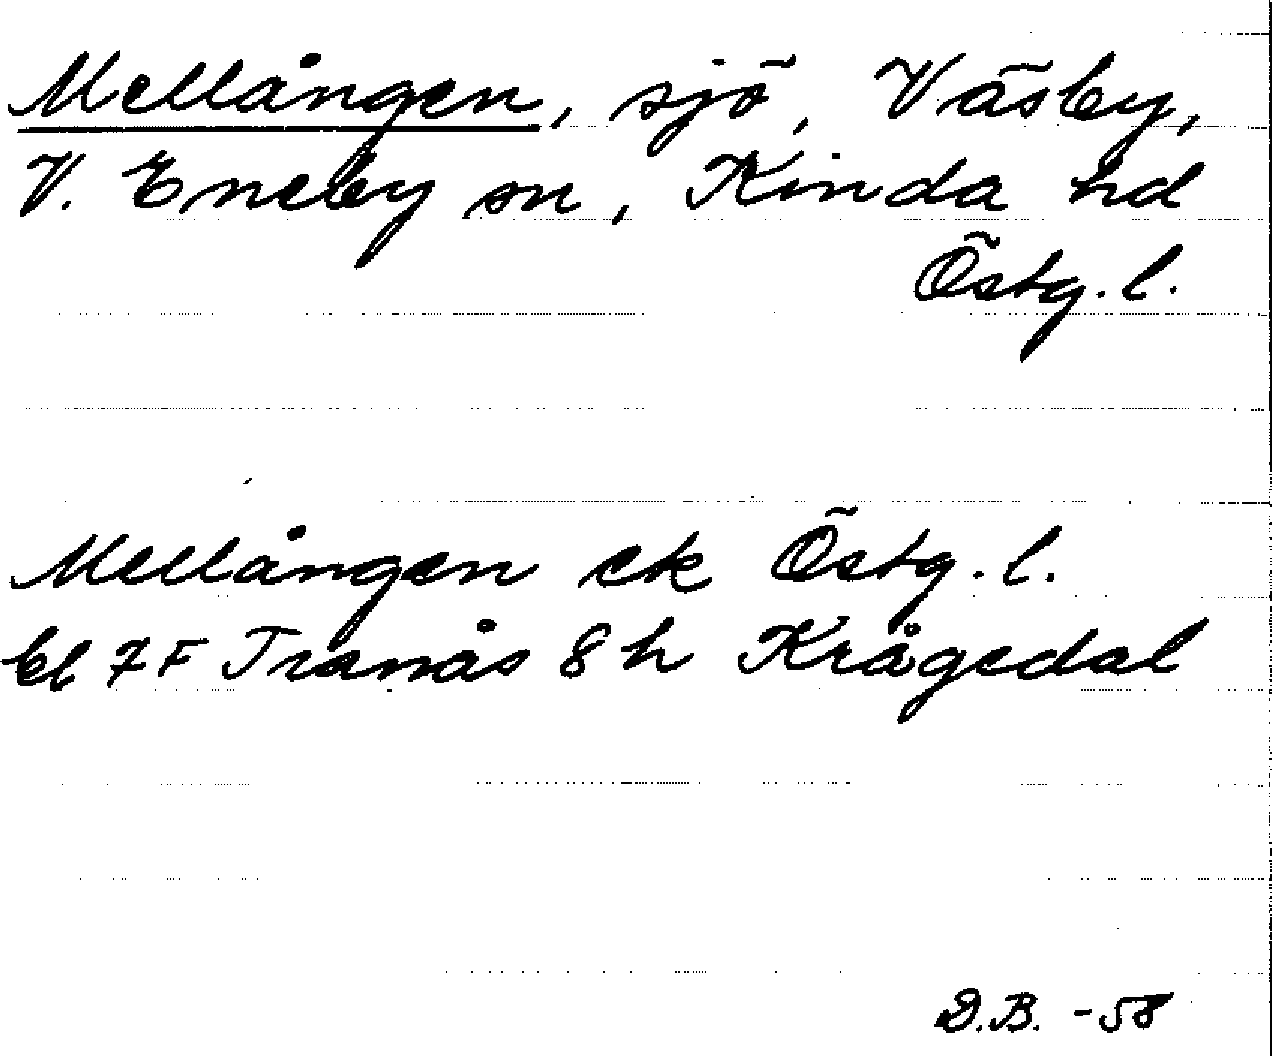 Mellången, sjö, Väsby,
V. Eneby sn, Kinda hd
Östg. l.
Mellången ek Östg. l.
bl 7 F Tranås 8 h Krågedal
D.B. -58